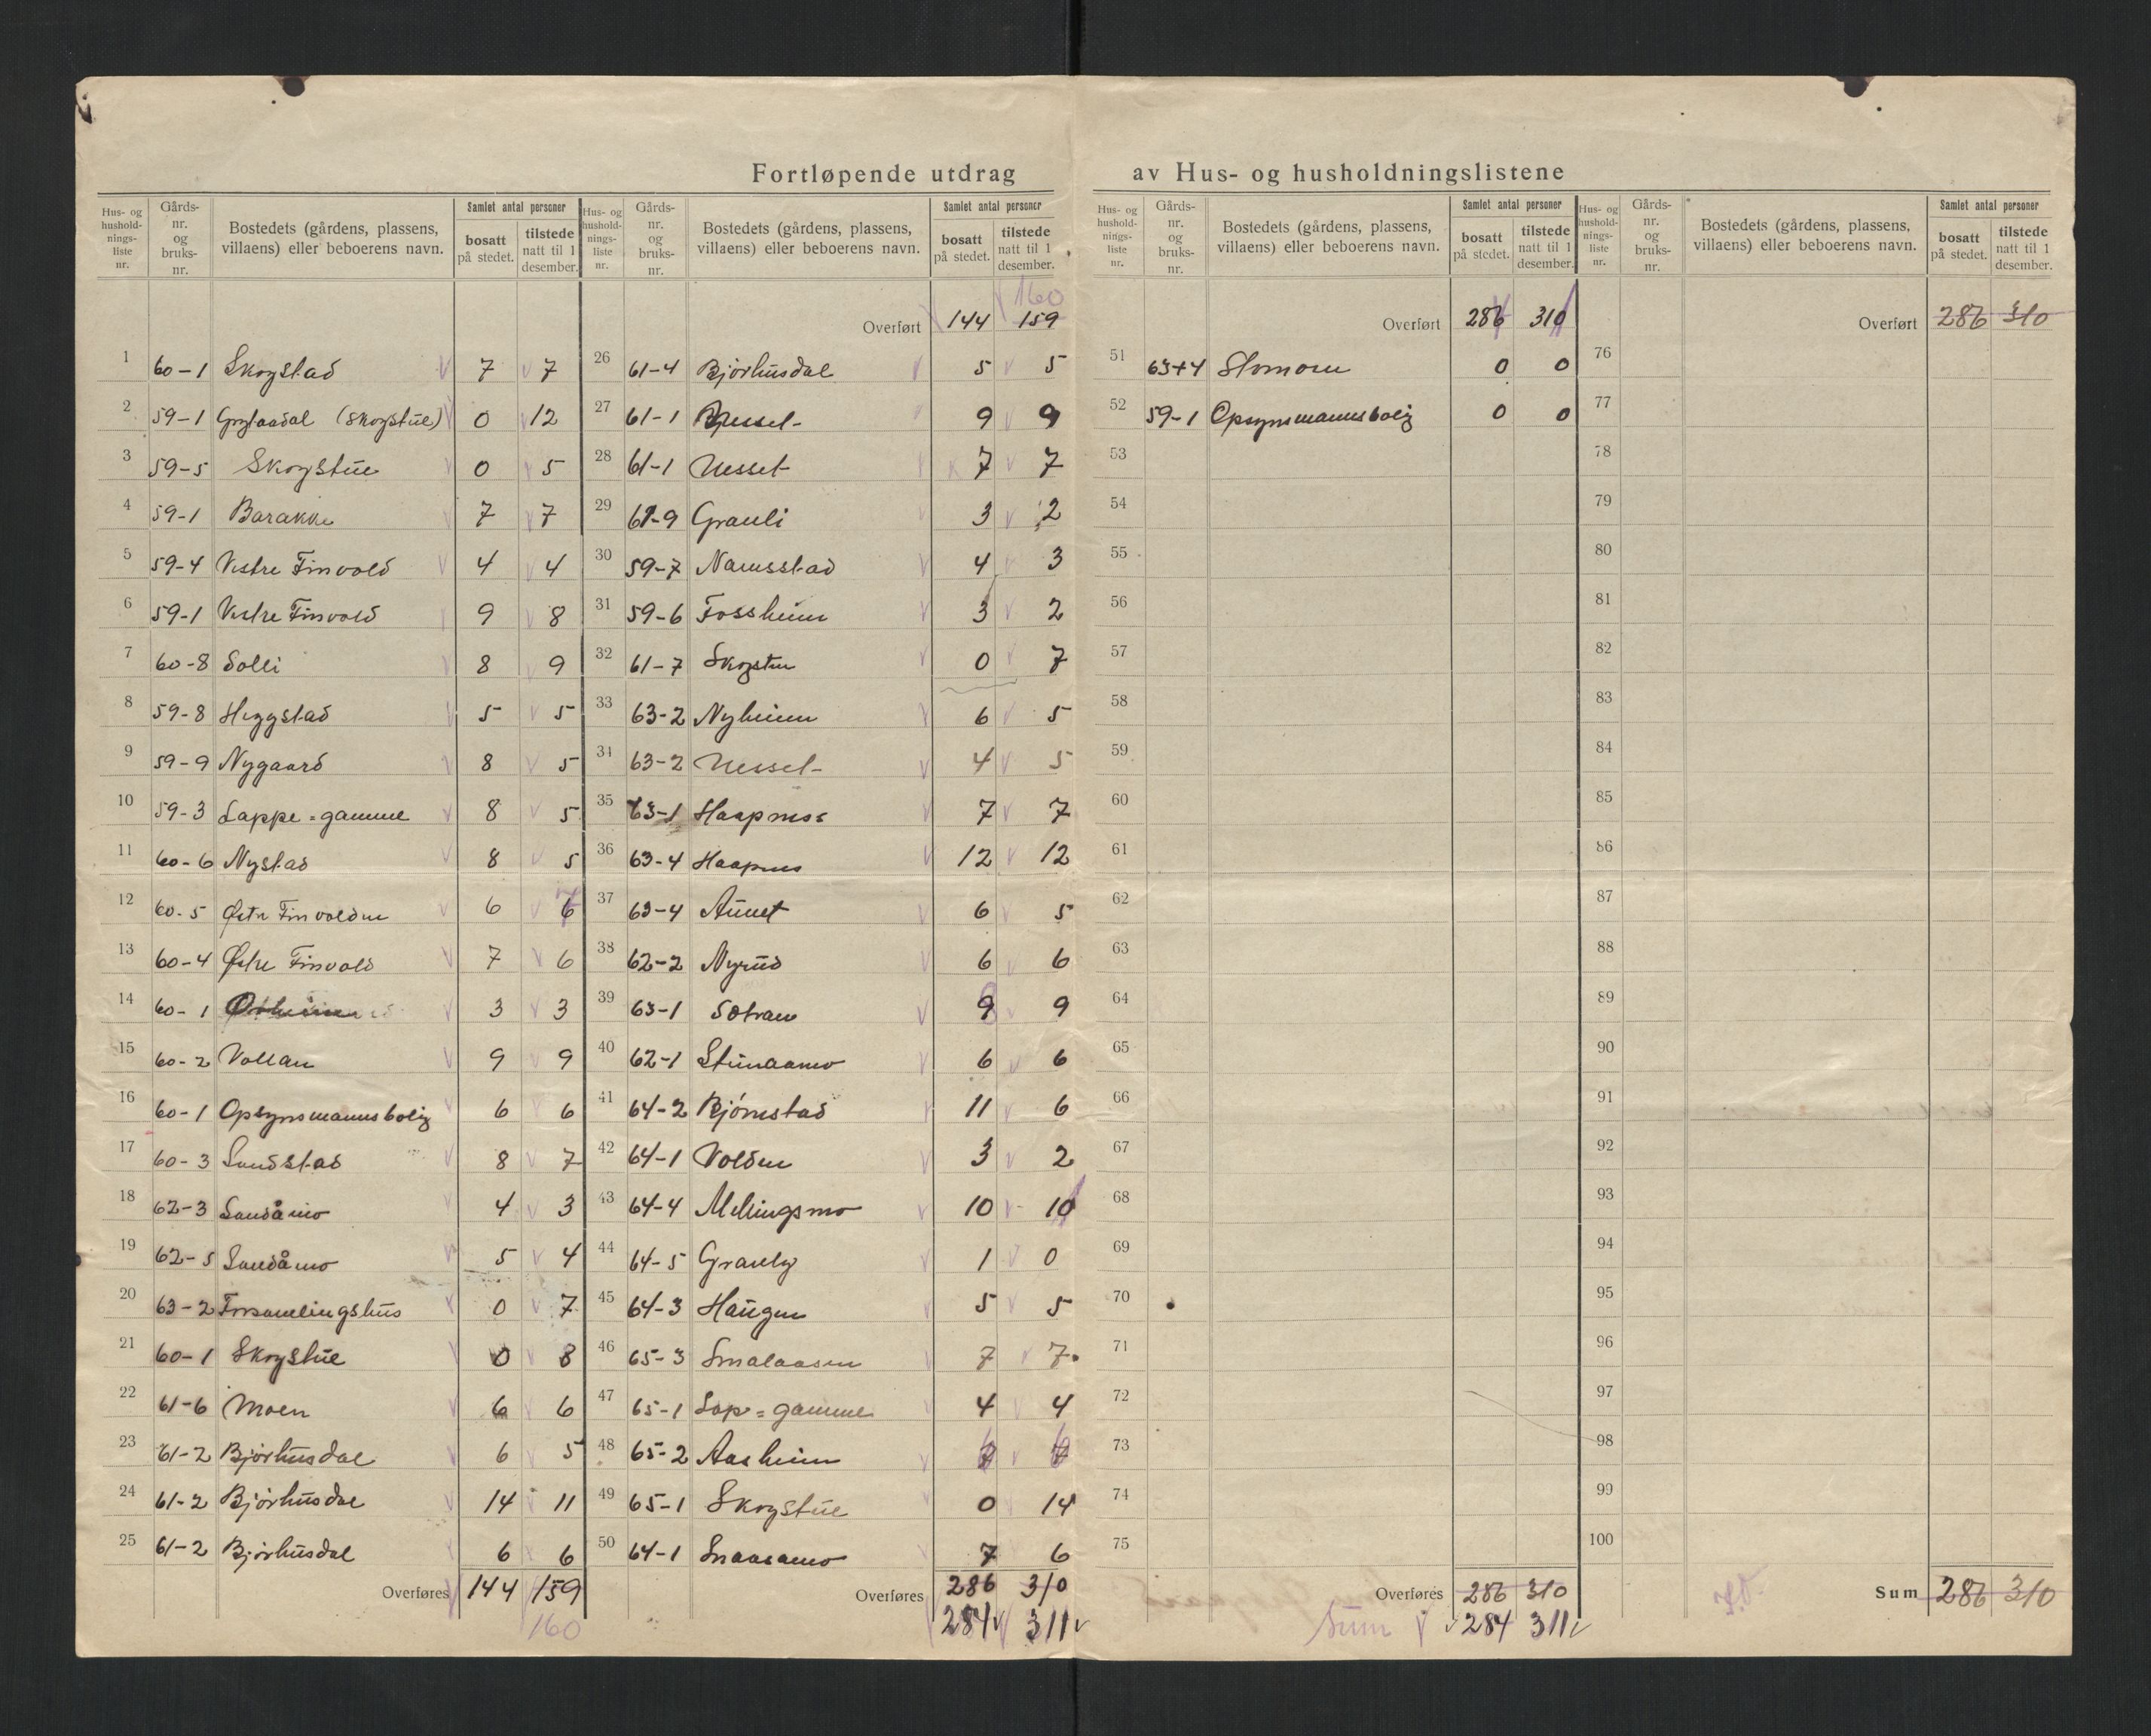 Fortløpende utdrag av Hus- og husholdningslistene
Hus- og hushold-nings-liste nr. Gårds-nr. og bruks-nr. Bostedets (gårdens, plassens, villaens) eller beboerens navn. Samlet antal personer bosatt på stedet. tilstede natt til 1 desember.
1 60-1 Skogstad 7 7
2 59-1 (Skogstue) 0 12
3 59-5 Skogstue 0 5
4 59-1 Barakke 7 7
5 59-4 Vestre Finvold 4 4
6 59-1 Vestre Finvold 9 8
7 60-8 Solli 8 9
8 59-8 Heggstad 5 5
9 59-9 Nygaard 8 5
10 59-3 Lappe=gamme 8 5
11 60-6 Nystad 8 5
12 60-5 Østre Finvolden 6 6 7
13 60-4 Østre Finvold 7 6
14 60-1 3 3
15 60-2 Vollan 9 9
16 60-1 Opsynsmannsbolig 6 6
17 60-3 Sundstad 8 7
18 62-3 Sandåmo 4 3
19 62-5 Sandåmo 5 4
20 63-2 Forsamlingshus 0 7
21 60-1 Skogstue 0 8
22 61-6 Moen 6 6
23 61-2 Bjørhusdal 6 5
24 61-2 Bjørhusdal 14 11
25 61-2 Bjørhusdal 6 6
Overføres 144 159
160
Hus- og hushold-nings-liste nr. Gårds-nr. og bruks-nr. Bostedets (gårdens, plassens, villaens) eller beboerens navn. Samlet antal personer bosatt på stedet. tilstede natt til 1 desember.
160
Overført 144 159
26 61-4 Bjørhusdal 5 5
27 61-1 9 9
28 61-1 Nesset 7 7
29 61-9 Granli 3 2
30 59-7 Namsstad 4 3
31 59-6 Fossheim 3 2
32 61-7 Skogstu 0 7
33 63-2 Nyheim 6 5
34 63-2 Nesset 4 5
35 63-1 Haapnes 7 7
36 63-4 Haapnes 12 12
37 63-4 Aunet 6 5
38 62-2 Nyrud 6 6
39 63-1 9 9
40 62-1 6 6
41 64-2 Bjørnstad 11 6
42 64-1 Volden 3 2
43 64-4 Mellingsmo 10 10
44 64-5 Granly 1 0
45 64-3 Haugen 5 5
46 65-3 Smalaasen 7 7
47 65-1 Lap=gamme 4 4
48 65-2 Aasheim
49 65-1 Skogstue 0 14
50 64-1 Snaasamo 7 6
Overføres 286 310
284 311
Hus- og hushold-nings-liste nr. Gårds-nr. og bruks-nr. Bostedets (gårdens, plassens, villaens) eller beboerens navn. Samlet antal personer bosatt på stedet. tilstede natt til 1 desember.
Overført 286 310
51 63+4 0 0
52 59-1 Opsynsmannsbolig 0 0
53
54
55
56
57
58
59
60
61
62
63
64
65
66
67
68
69
70
71
72
73
74
75
Overføres 286 310
Sum 284 311
Hus- og hushold-nings-liste nr. Gårds-nr. og bruks-nr. Bostedets (gårdens, plassens, villaens) eller beboerens navn. Samlet antal personer bosatt på stedet. tilstede natt til 1 desember.
Overført 286 310
76
77
78
79
80
81
82
83
84
85
86
87
88
89
90
91
92
93
94
95
96
97
98
99
100
Sum 286 310